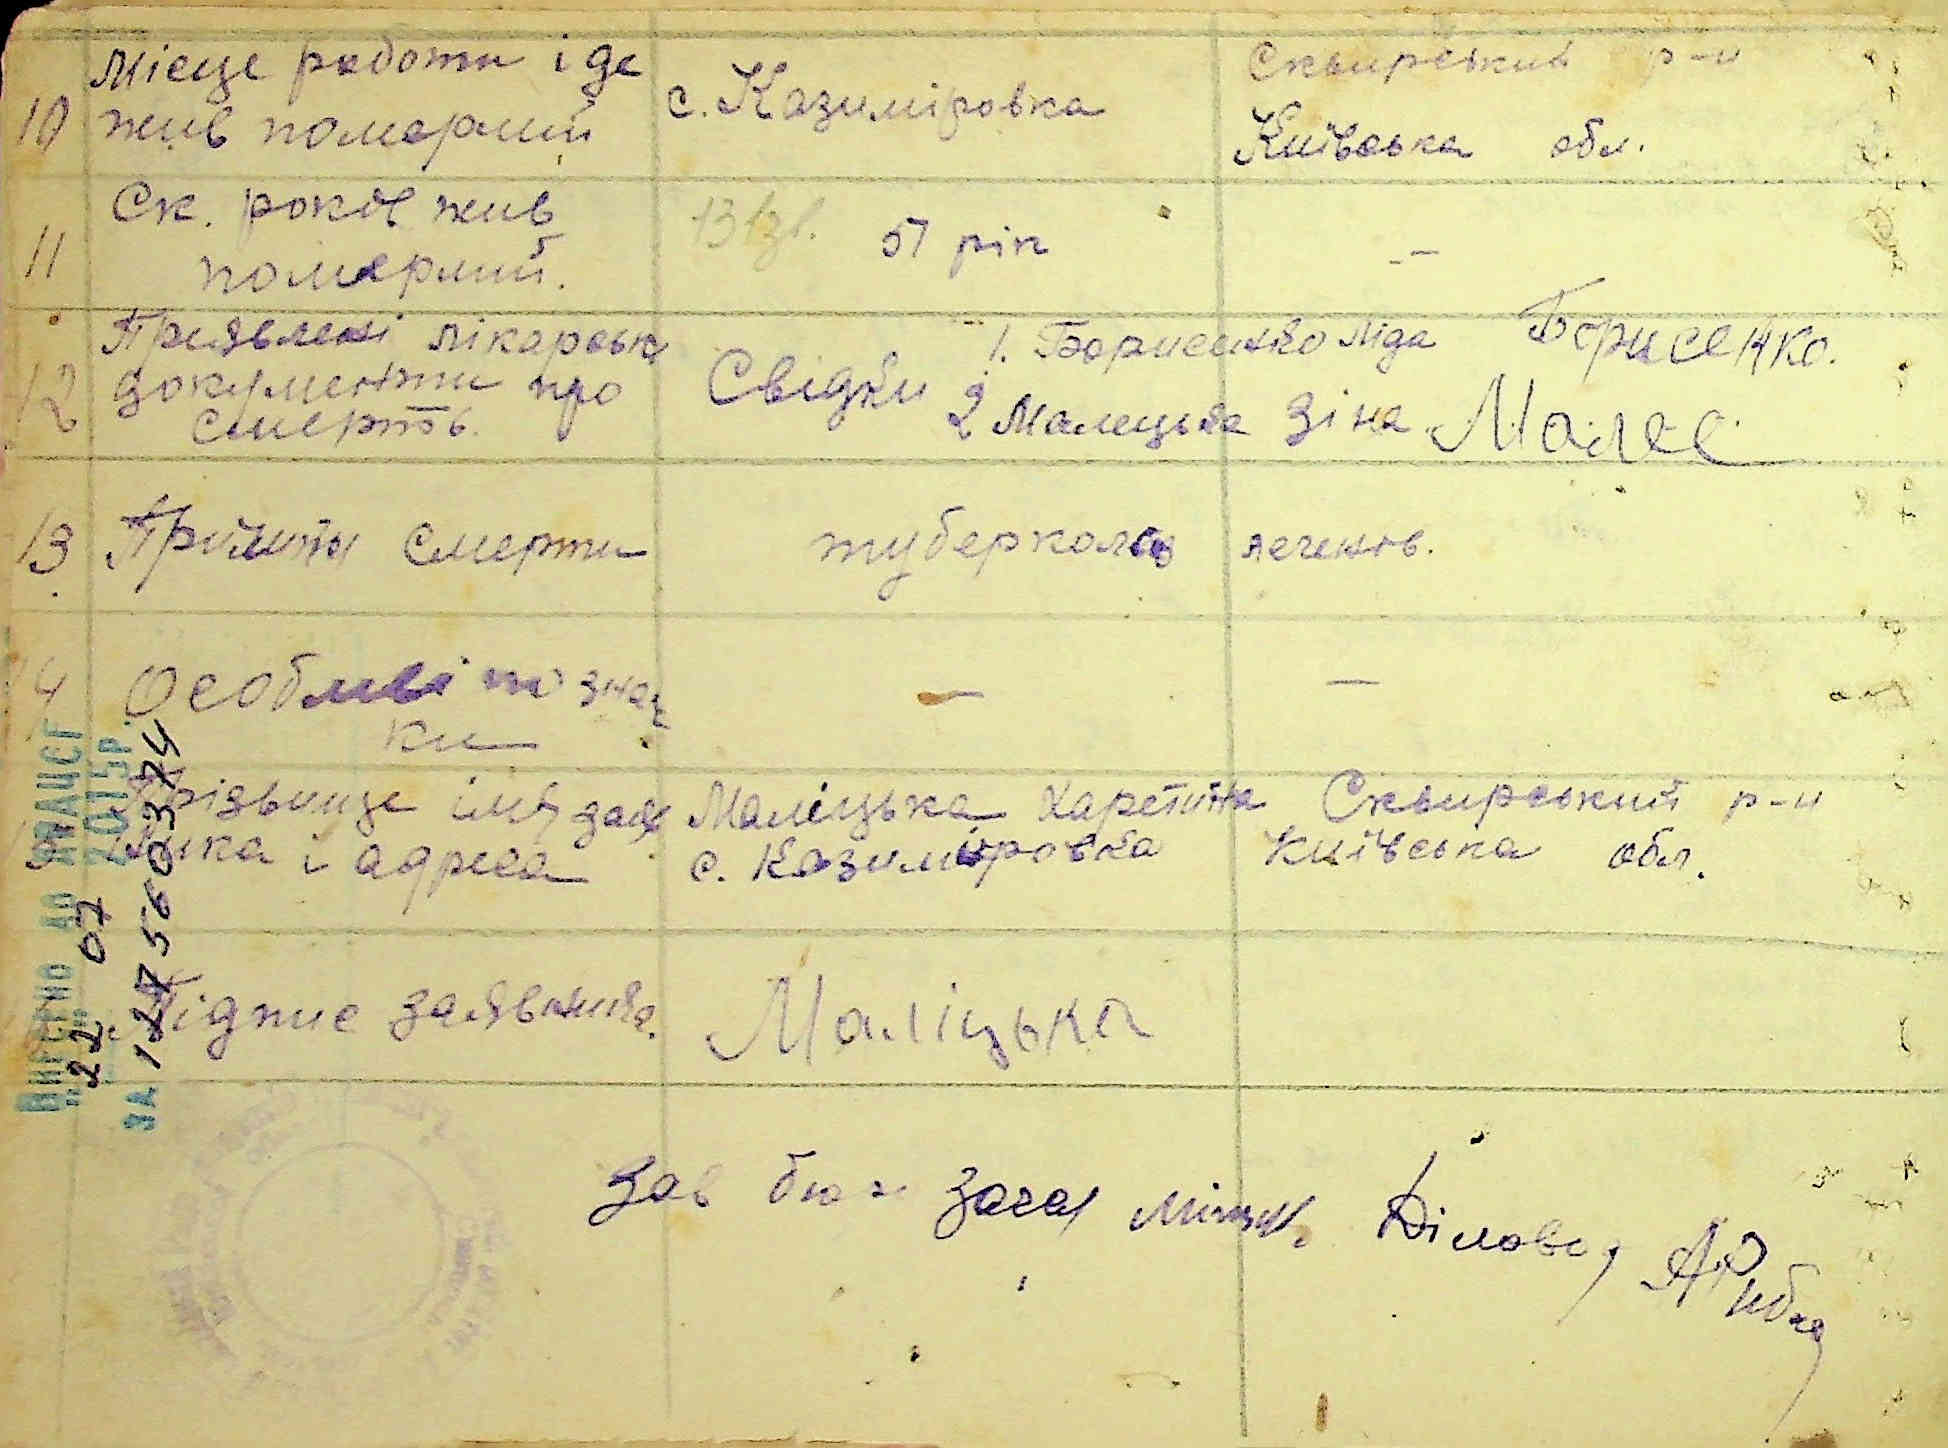 10 Місце работи і де
жив померший
с. Казиміровка
Сквирський р-н
Київська обл.
11 Ск. років жив
померший.
51 рік
—
12 Предявлені лікарськ
документи про
смерть.
Свідки
1. Борисенко Ліда Борисенко.
2 Малецька Зіна Малец
13 Причини смерти
туберкольоз легенів.
14 Особливі по знач
ки
— —
Прізвище імя заяв
ника і адреса
Маліцька
с. Казиміровка
Сквирський р-н
Київська обл.
Підпис заявника.
Маліцька
Зав бюр Загс
Діловод
ВНЕСЕНО ДО ДРАЦСГ
"22" 07 2015р.
ЗА